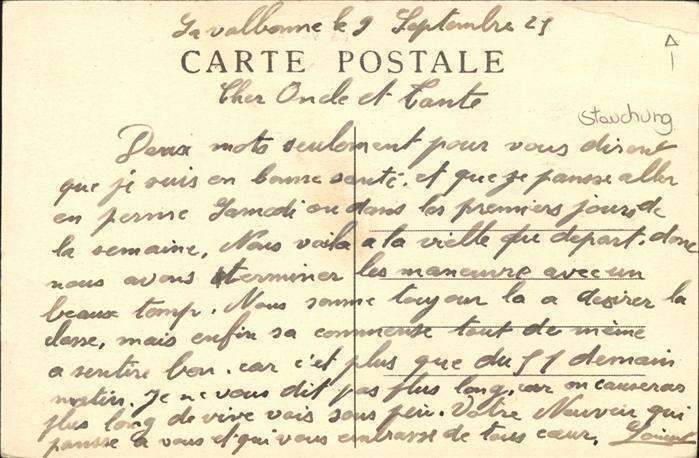 La valbonne le 9 Septembre 29
CARTE POSTALE
Cher Oncle et Tante
Stauchung
Deux mots seulement pour vous dirent
que je suis en bonne santé. et que je pansse aller
en perme Samedi ou dans les premiers jours de
la semaine. Nous voila a la vielle du depart. donc
nous avons terminer les maneuvre avec un
beaux temp. Nous somme toujour la a desirer la
classe, mais enfin sa commense tout de même
a sentire bon. car c'et plus que du 51 demain
matin. Je ne vous dit pas plus long, car on causeras
plus long de vive vois sous peu. Votre Neuveu qui
pansse a vous et qui vous embrasse de tous cœur.